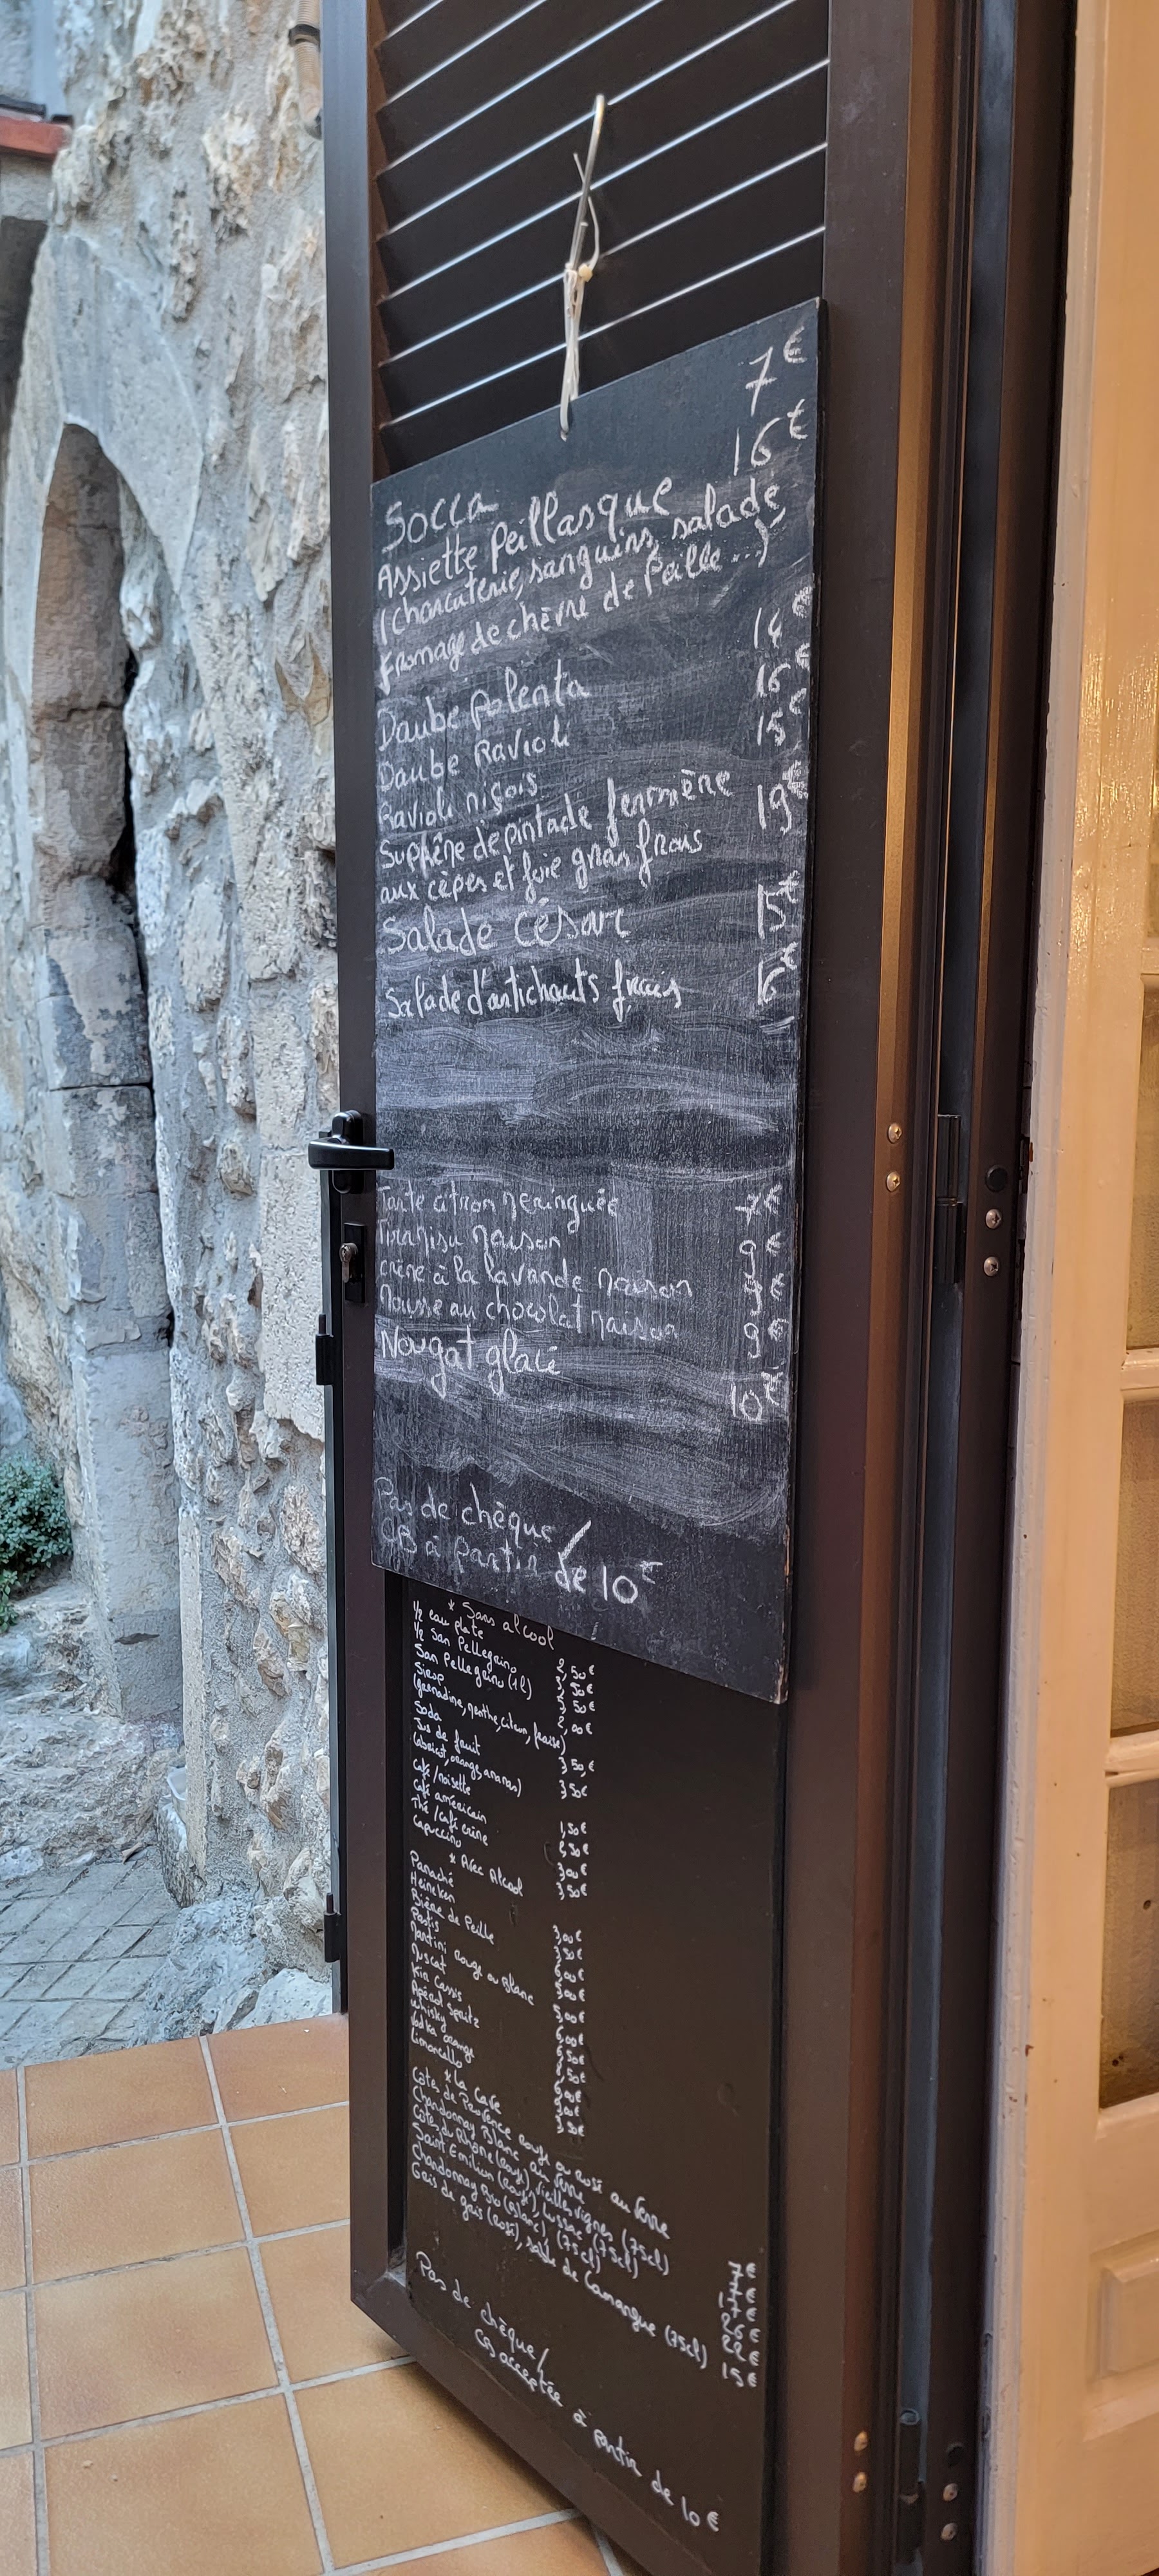 Socca 7€
Assiette Peillasque 16€
(charcuterie, sanguins, salade,
fromage de chèvre de Peille ...)
Daube polenta 14€
Daube Ravioli 16€
Ravioli niçois 15€
Suprême de pintade fermière 19€
aux cèpes et foie gras frais
Salade César 15€
Salade d'artichauts frais
Tarte citron meringuée 7€
Tiramisu maison 9€
crème à la lavande maison
Mousse au chocolat maison 9€
Nougat glacé 10€
Pas de chèque /
CB à partir de 10€
* Sans alcool
1/2 eau plate 2,50€
1/2 San Pellegrino
San Pellegrino (1l)
Sirop 2,00€
(grenadine, menthe, citron, fraise)
Soda 3,50€
Jus de fruit 3,50€
(abricot, orange, ananas)
Café/noisette 1,50€
Café américain
Thé/café crème 3,00€
Capuccino 3,50€
* Avec Alcool
Panaché 3,00€
Heineken 3,50€
Bière de Peille
Pastis
Martini Rouge ou Blanc
Muscat
Kir Cassis
Apérol Spritz
Whisky
Vodka orange
Limoncello
* La Cave
Côtes de Provence rouge ou rosé au verre
Chardonnay Blanc au verre
Côtes du Rhône (rouge), vieilles vignes (75cl)
Saint Emilion (rouge), Lussac (75cl)
Chardonnay Bio (Blanc), (75cl)
Gris de gris (rosé), sable de Camargue (75cl) 15€
Pas de chèque/
CB acceptée à partir de 10€